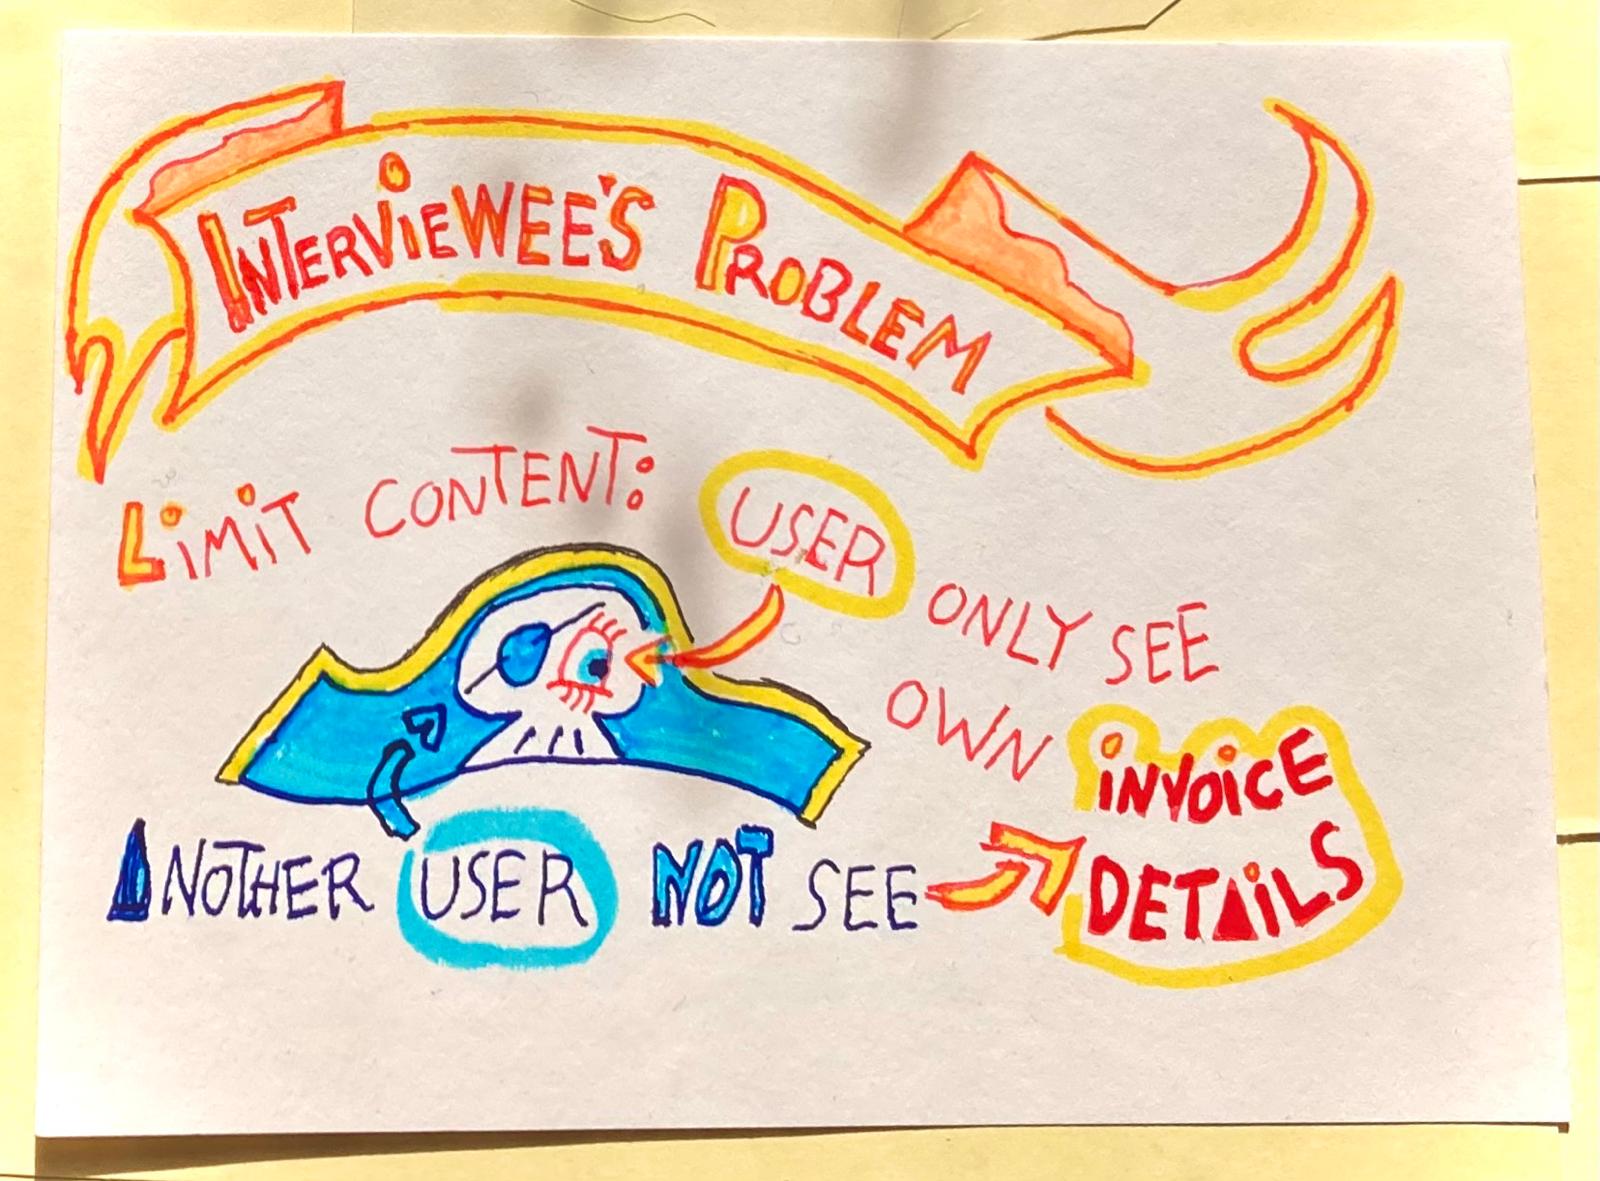 INTERVIEWEE'S PROBLEM
LIMIT CONTENT: USER ONLY SEE
OWN INVOICE
DETAILS
ANOTHER USER NOT SEE